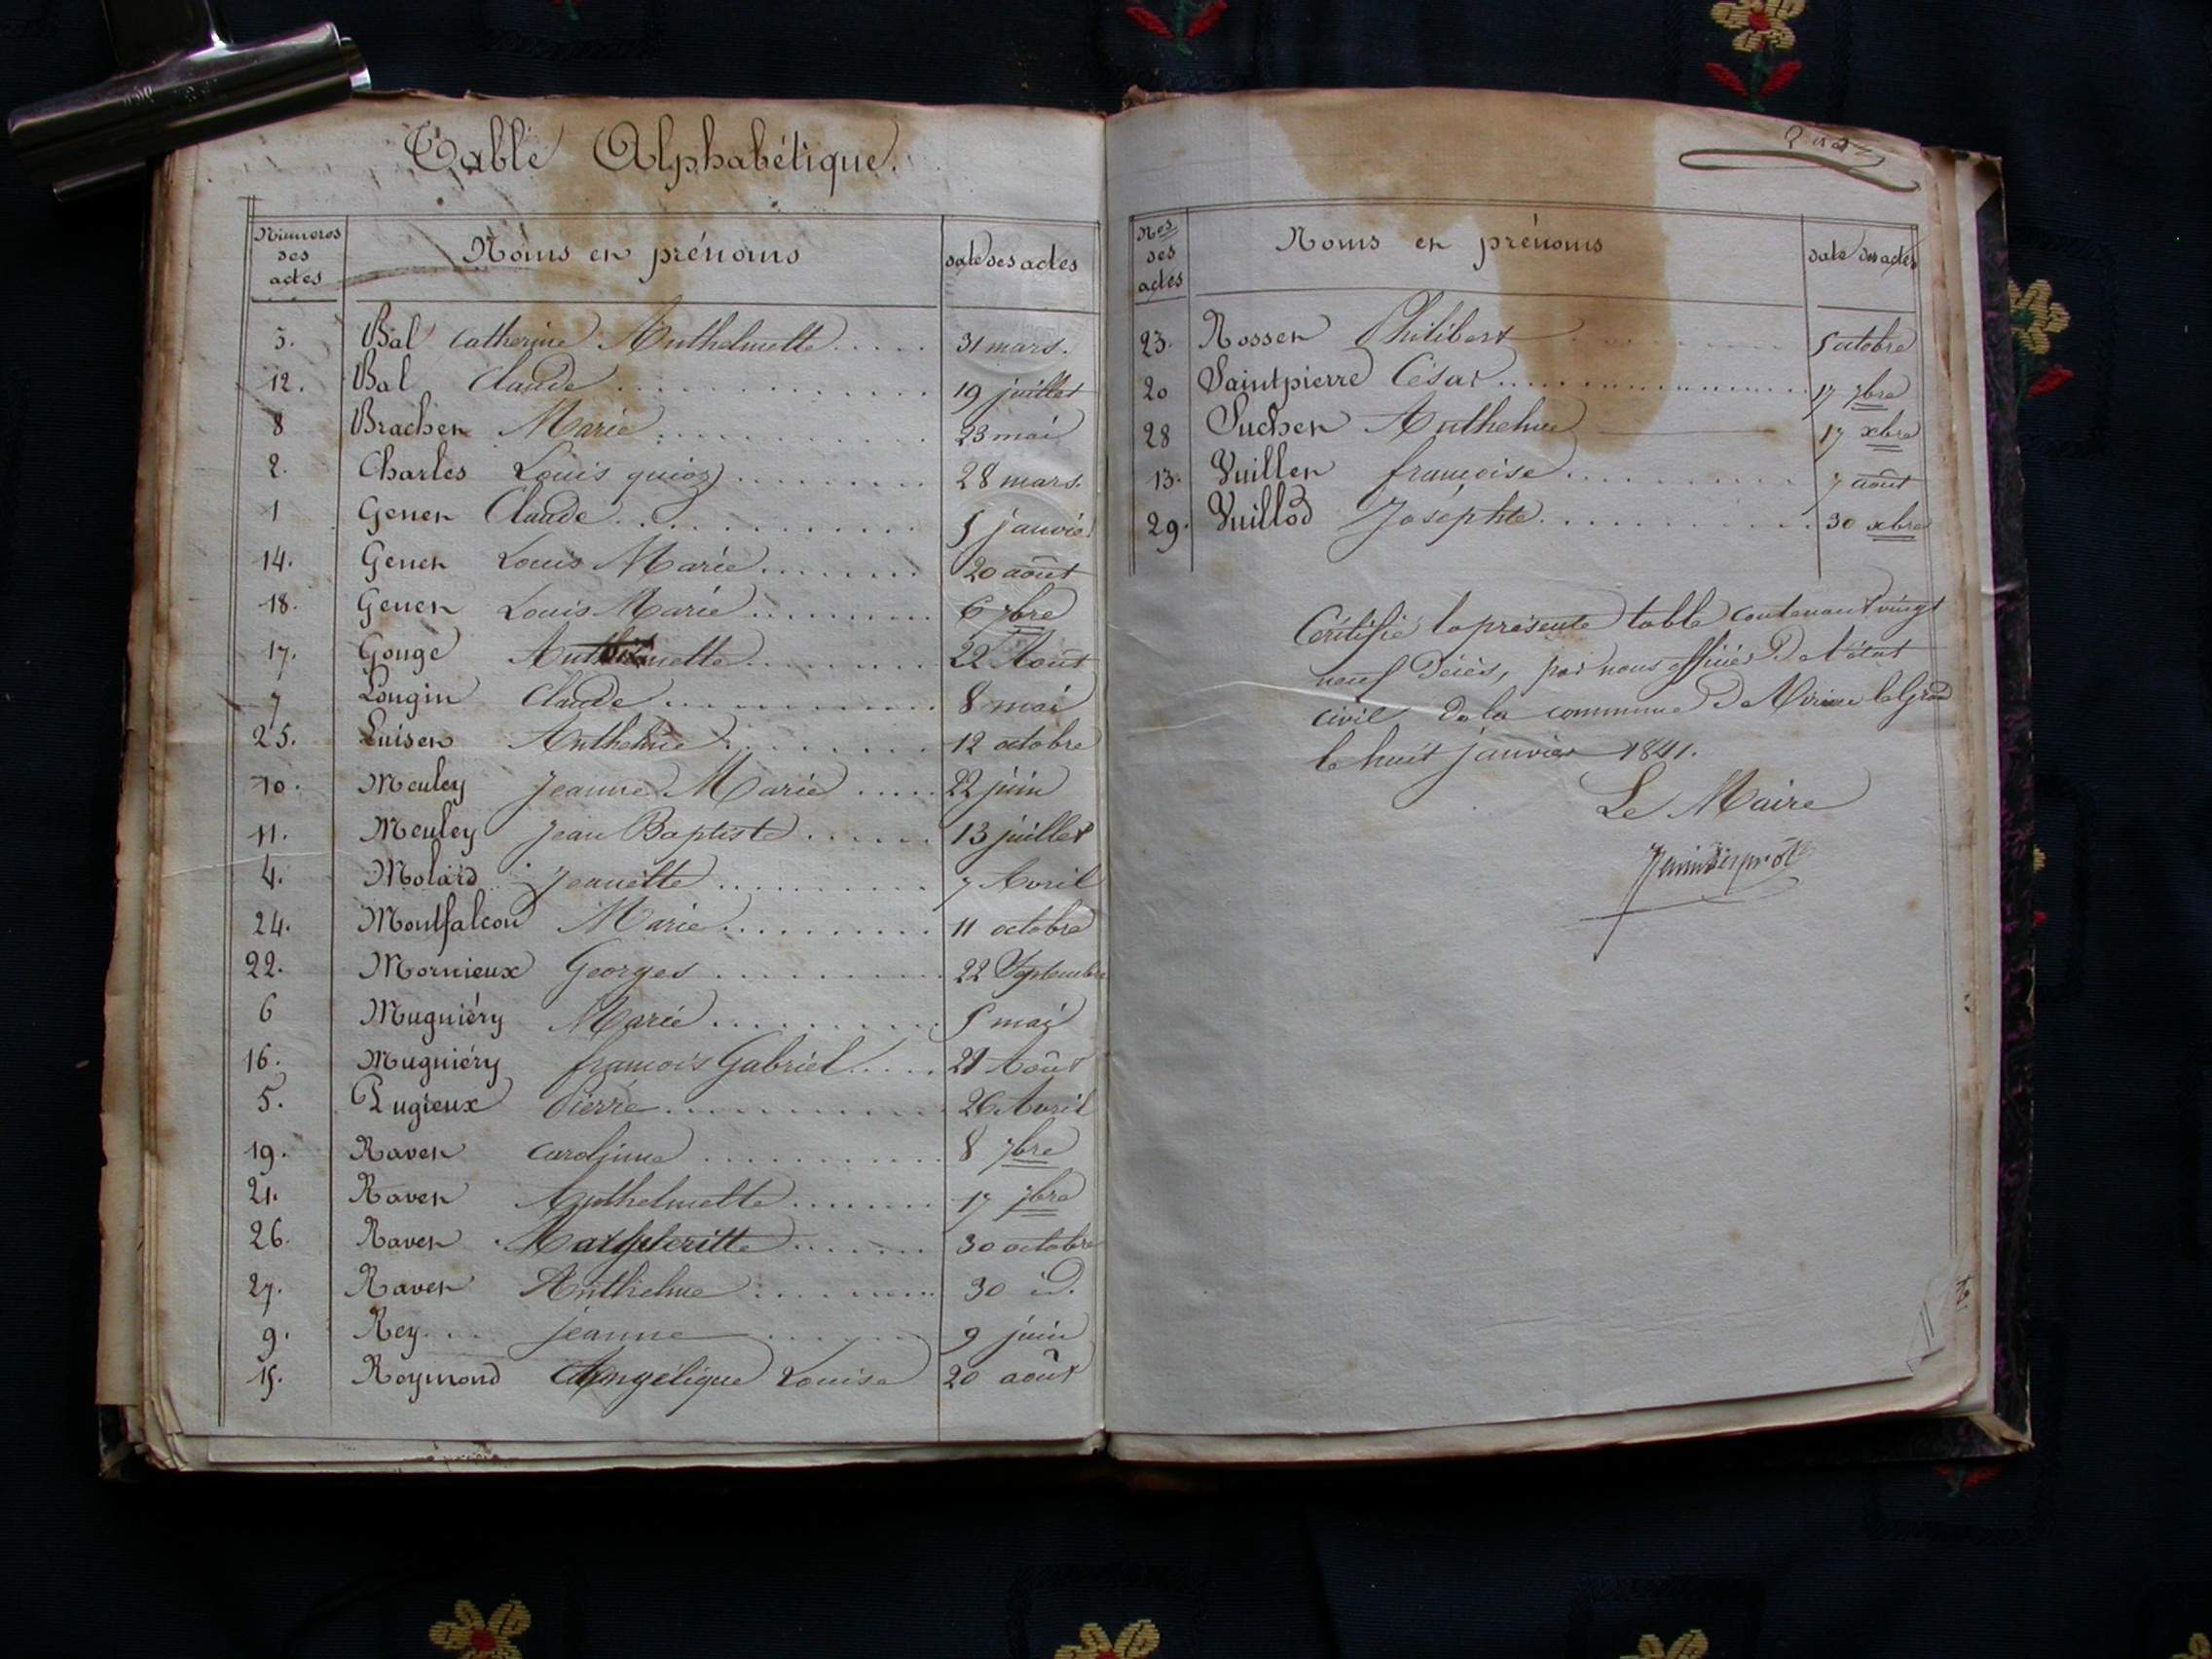 Table Alphabétique.
Numéros des actes
Noms et prénoms
date des actes
3. Bal Catherine Anthelmette 31 mars.
12. Bal Claude 19 juillet
8 Brachet Marie 23 mai
2. Charles Louis quioz 28 mars.
1 Genet Claude 5 janvier
14. Genet Louis Marie 20 août
18. Genet Louis Marie 6 7bre
17. Gouge 22 Août
7 Longin Claude 8 mai
25. Luiset Anthelme 12 octobre
10. Meuley Jeanne Marie 22 juin
11. Meuley Jean Baptiste 13 juillet
4. Molard Jeanette 7 Avril
24. Montfalcon Marie 11 octobre
22. Mornieux Georges 22 Septembre
6 Mugniéry Marie 5 mai
16. Mugniéry francois Gabriel 21 Août
5. Pugieux Pierre 26 Avril
19. Ravet Caroline 8 7bre
21. Ravet Anthelmette 17 7bre
26. Ravet Margueritte 30 octobre
27. Ravet Anthelme 30 id.
9. Rey jeanne 9 juin
15. Reymond Angélique Louise 20 août
Nos des actes
Noms et prénoms
date des actes
23. Rosset Philibert 5 octobre
20 Saintpierre César 17 7bre
28 Suchet Anthelme 17 xbre
13. Vuillet francoise 7 août
29. Vuillod Joséphte 30 xbre
Certifié la présente table contenant vingt
neuf Décès, par nous officier De l'état
civil De la commune De Virieu le Grand
le huit janvier 1841.
Le Maire